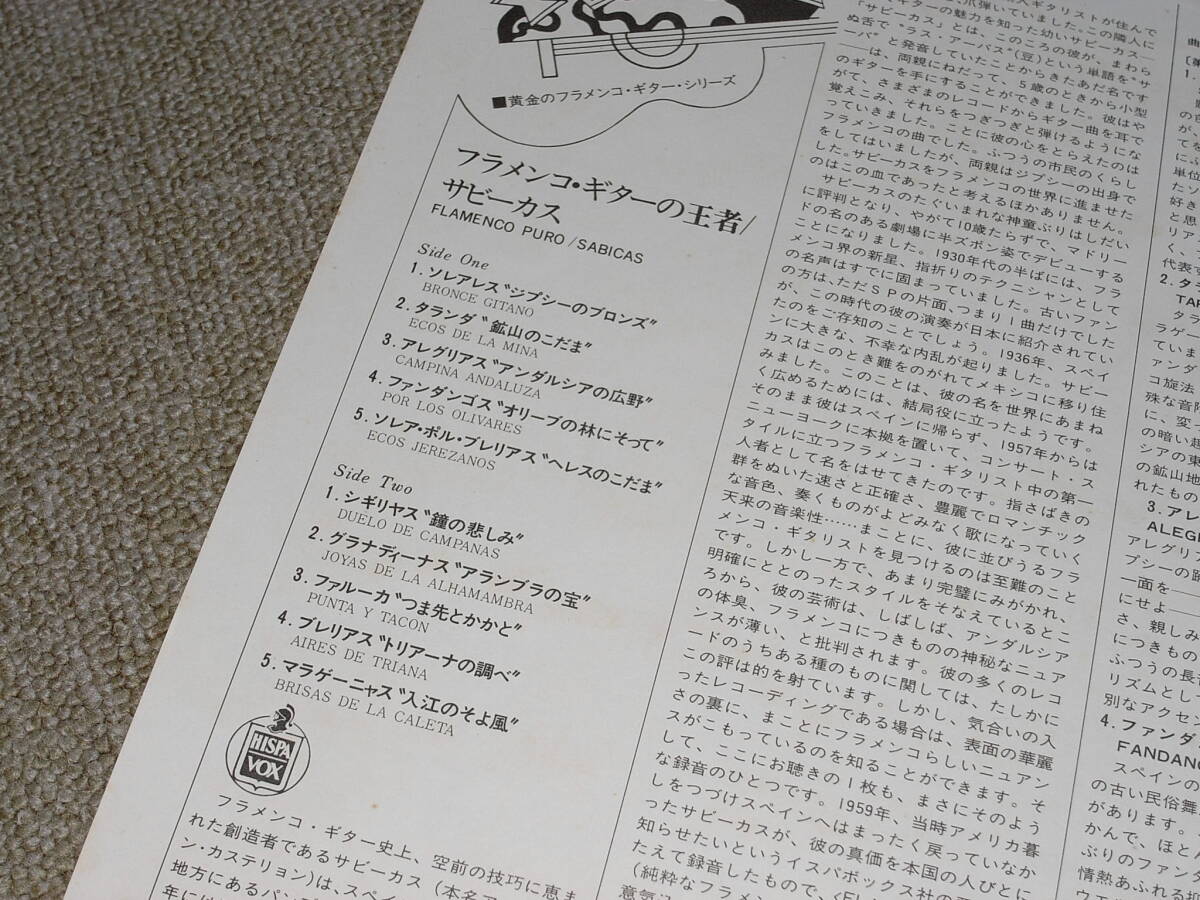 ■黄金のフラメンコ・ギター・シリーズ
フラメンコ・ギターの王者/
サビーカス
FLAMENCO PURO/SABICAS
Side One
1. ソレアレス“ジプシーのブロンズ”
BRONCE GITANO
2. タランダ“鉱山のこだま”
ECOS DE LA MINA
3. アレグリアス“アンダルシアの広野”
CAMPINA ANDALUZA
4. ファンダンゴス“オリーブの林にそって”
POR LOS OLIVARES
5. ソレア・ポル・ブレリアス“ヘレスのこだま”
ECOS JEREZANOS
Side Two
1. シギリヤス“鐘の悲しみ”
DUELO DE CAMPANAS
2. グラナディーナス“アランブラの宝”
JOYAS DE LA ALHAMAMBRA
3. ファルーカ“つま先とかかと”
PUNTA Y TACON
4. ブレリアス“トリアーナの調べ”
AIRES DE TRIANA
5. マラゲーニャス“入江のそよ風”
BRISAS DE LA CALETA
HISPA
VOX
フラメンコ・ギター史上、空前の技巧に恵ま
れた創造者であるサビーカス（本名ア
ン・カステリョン）は、スペイ
地方にあるパン
年に
ギタリストが住んで
、爪弾いていました。この隣人に
ギターの魅力を知った幼いサビーカス——
「サビーカス」とは、このころの彼が、まわら
ぬ舌で“ラス・アーバス”（豆）という単語を“サ
ーバ”と発音していたことからきたあだ名です
——は、両親にねだって、5歳のときから小型
のギターを手にすることができました。彼はや
がて、さまざまのレコードからギター曲を耳で
覚えこみ、それらをつぎつぎと弾けるようにな
っていきました。ことに彼の心をとらえたのは
フラメンコの曲でした。ふつうの市民のくらし
をしてはいましたが、両親はジプシーの出身で
した。サビーカスをフラメンコの世界に進ませた
のはこの血であったと考えるほかありません。
サビーカスのたぐいまれな神童ぶりはしだい
に評判となり、やがて10歳たらずで、マドリー
ドの名のある劇場に半ズボン姿でデビューする
ことになりました。1930年代の半ばには、フラ
メンコ界の新星、指折りのテクニシャンとして
の名声はすでに固まっていました。古いファン
の方は、ただSPの片面、つまり1曲だけでした
が、この時代の彼の演奏が日本に紹介されてい
たのをご存知のことでしょう。1936年、スペイ
ンに大きな、不幸な内乱が起りました。サビー
カスはこのとき難をのがれてメキシコに移り住
みました。このことは、彼の名を世界にあまね
く広めるためには、結局役に立ったようです。
そのまま彼はスペインに帰らず、1957年からは
ニューヨークに本拠を置いて、コンサート・ス
タイルに立つフラメンコ・ギタリスト中の第一
人者として名をはせてきたのです。指さばきの
群をぬいた速さと正確さ、豊麗でロマンチック
な音色、奏くものがよどみなく歌になっていく
天来の音楽性……まことに、彼に並びうるフラ
メンコ・ギタリストを見つけるのは至難のこと
です。しかし一方で、あまり完璧にみがかれ、
明確にととのったスタイルをそなえているとこ
ろから、彼の芸術は、しばしば、アンダルシア
の体臭、フラメンコにつきものの神秘なニュア
ンスが薄い、と批判されます。彼の多くのレコ
ードのうちある種のものに関しては、たしかに
この評は的を射ています。しかし、気合いの入
ったレコーディングである場合は、表面の華麗
さの裏に、まことにフラメンコらしいニュアン
スがこもっているのを知ることができます。そ
して、ここにお聴きの1枚も、まさにそのよう
な録音のひとつです。1959年、当時アメリカ暮
しをつづけスペインへはまったく戻っていなか
ったサビーカスが、彼の真価を本国の人びとに
知らせたいというイスパボックス社の
たえて録音したもので、
（純粋なフラメン
曲
1.
の
てを
に、
単位
たソ
好き
と思
リア
く、
代表
2. タ
TA
タラ
ラゲ
ていま
アンダ
コ旋法
殊な音
に、変
の暗い
シアの東
の鉱山地
れたもの
3. アレ
ALEG
アレグリ
プシーの
一面を——
にせよ——
さ、親しみ
につきもの
ふつうの長
リズムとし
別なアクセ
4. ファンダ
FANDANG
スペインの
の古い民俗舞
があります。
かんで、ほとん
ぶりのファンダ
情熱あふれる